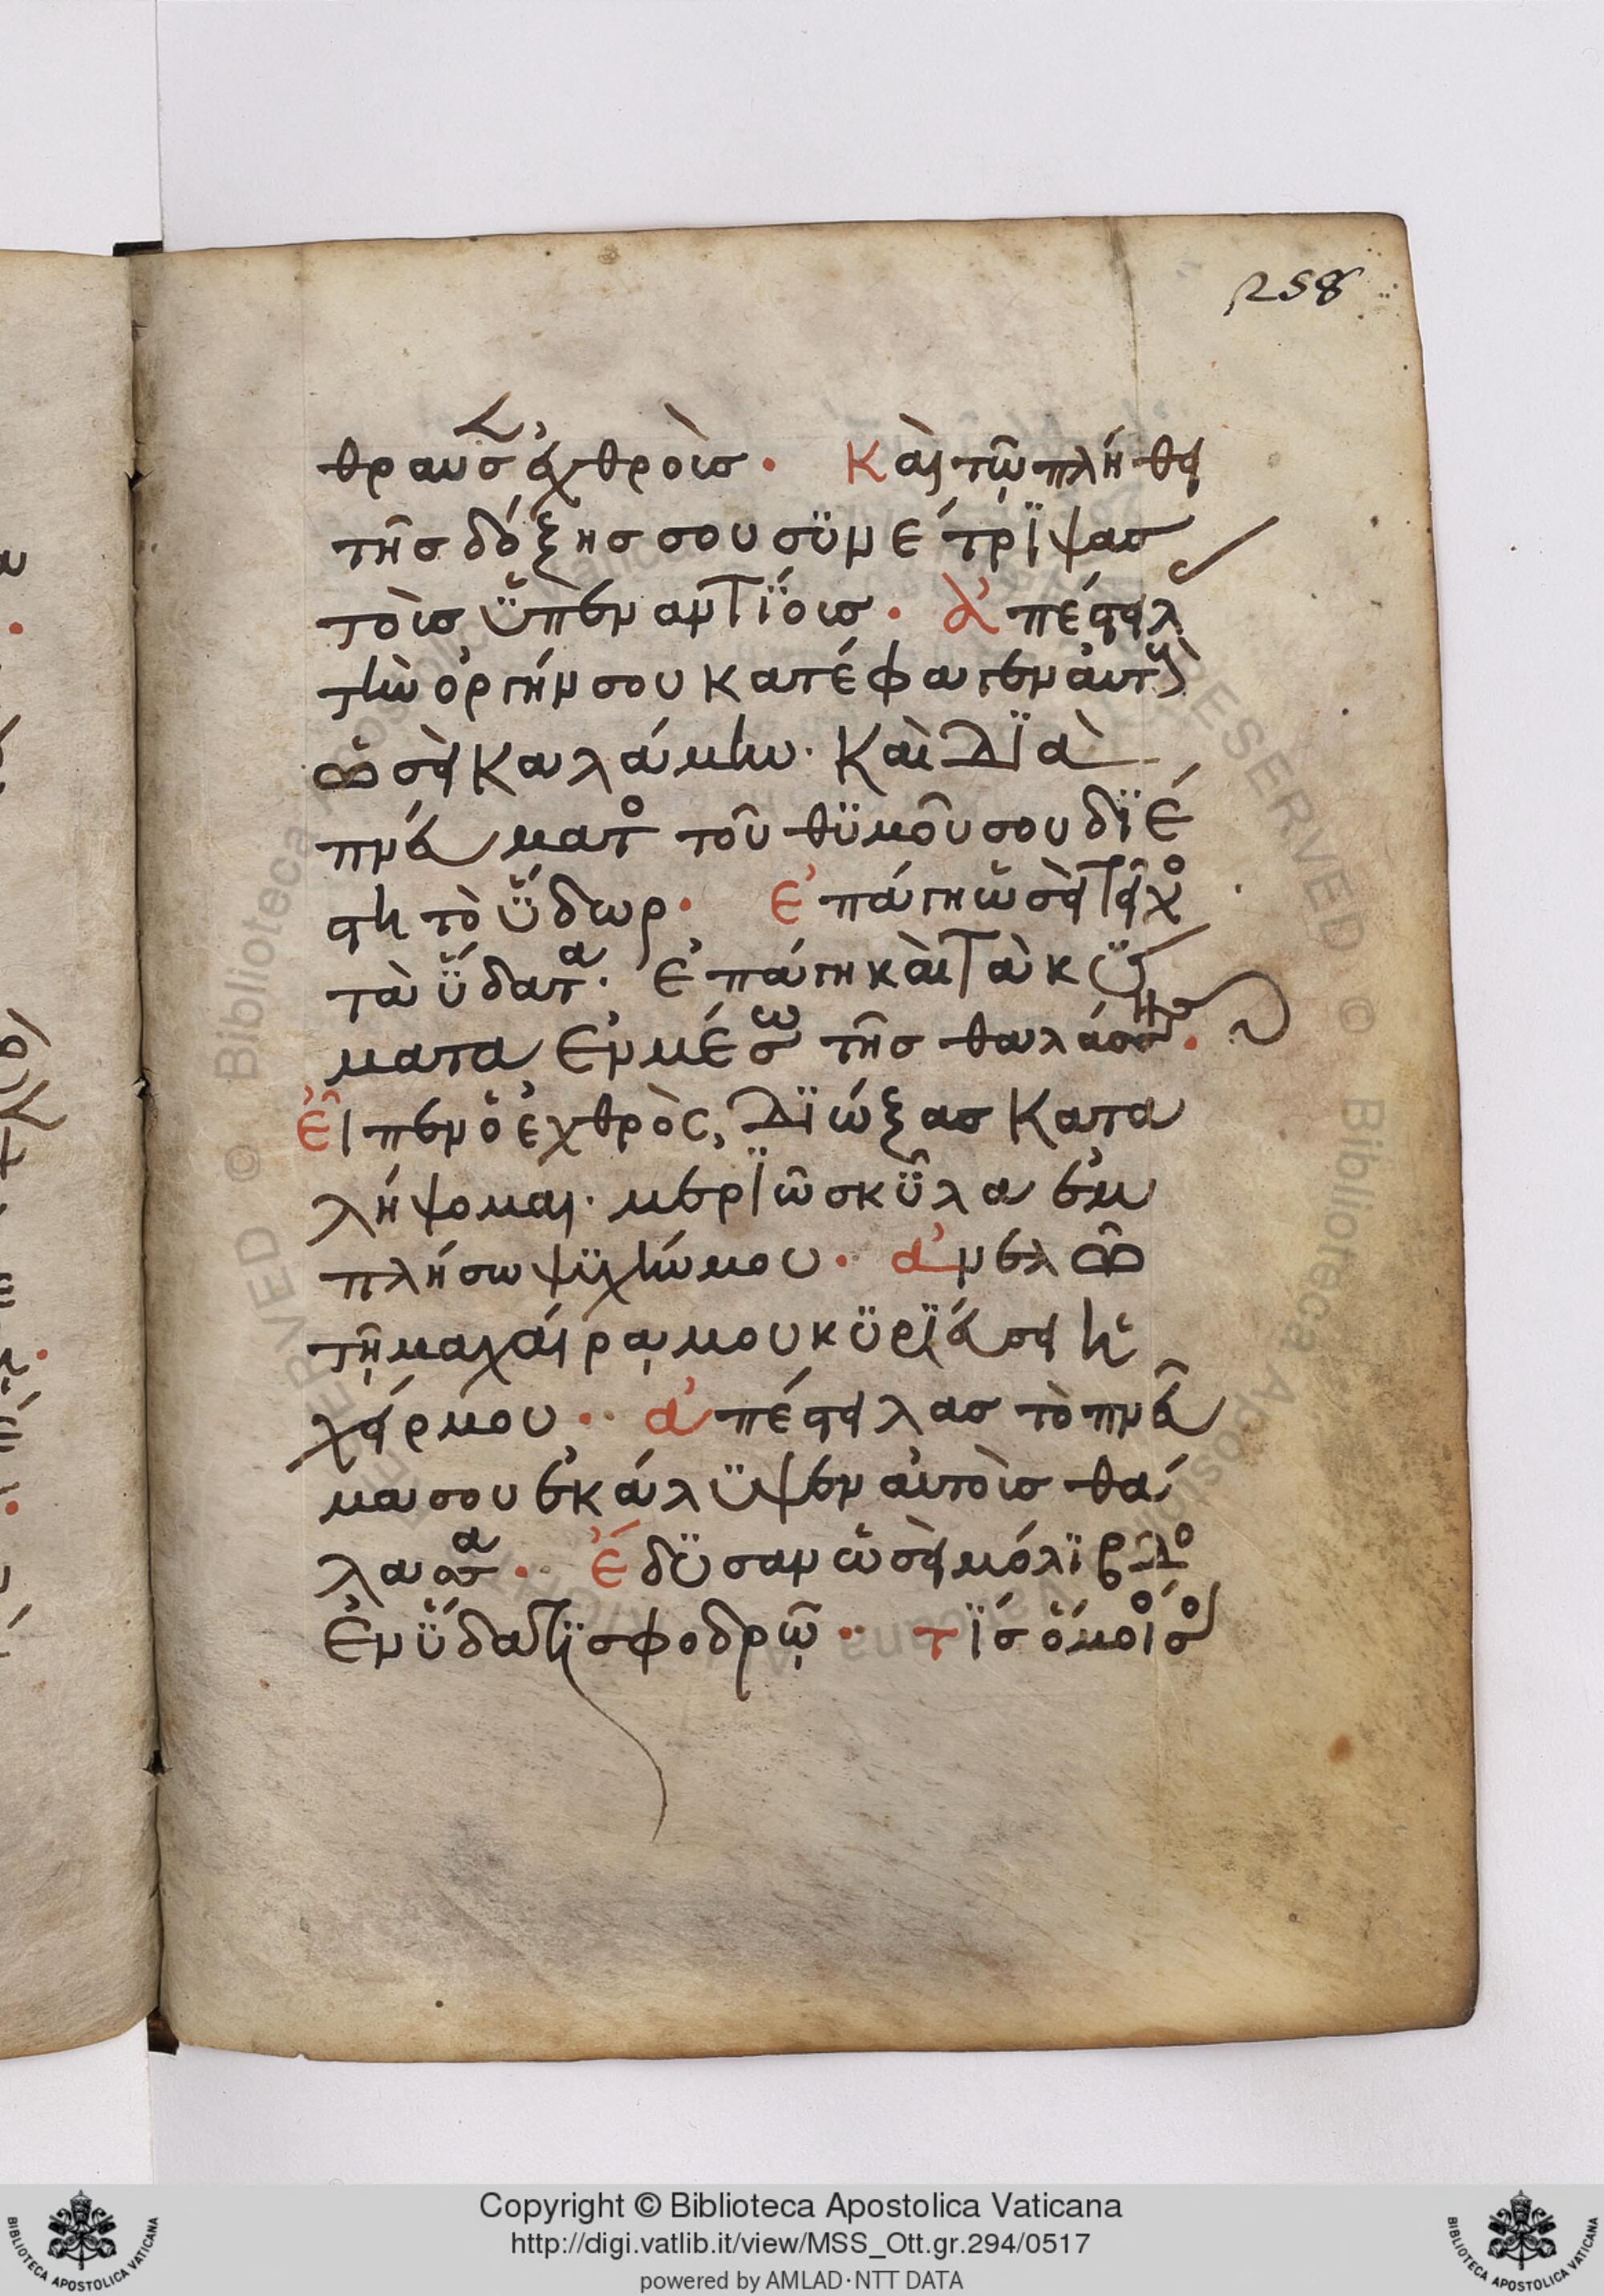 258
θραυσεν ἐχθροὺς. Καὶ τῷ πλήθει
τῆσ δόξησ σου σϋνέτρϊψασ
τοὺσ ϋπεναντΐουσ. ἀπέστειλασ
τὴν ὀργήν σου κατέφαγεν αὐτοὺσ
ὡσεὶ καλάμην. Καὶ δϊὰ
πνεύματοσ τοῦ θϋμοῦ σου δϊέ
στη τὸ ΰδωρ. Ἐπάγη ὡσεὶ τεῖχοσ
τὰ ΰδατα. Ἐπάγη καὶ τὰ κϋ
ματα ἐν μέσω τῆσ θαλάσσησ.
Εἶπεν ὁ ἐχθρὸς, Δϊώξασ κατα
λήψομαι. μερϊῶ σκῦλα ἐμ
πλήσω ψϋχήν μου. ἀνελῶ
τῇ μαχαίρᾳ μου κϋρϊεύσει ἡ
χείρ μου. ἀπέστειλασ τὸ πνεῦ
μα σου ἐκάλϋψεν αὐτοὺσ θά
λασσα. ἔδϋσαν ὡσεὶ μόλϊβδοσ
ἐν ΰδατϊ σφοδρῷ. τΐσ ὅμοιόσ
Copyright © Biblioteca Apostolica Vaticana
http://digi.vatlib.it/view/MSS_Ott.gr.294/0517
powered by AMLAD·NTT DATA
BIBLIOTECA APOSTOLICA VATICANA
BIBLIOTECA APOSTOLICA VATICANA